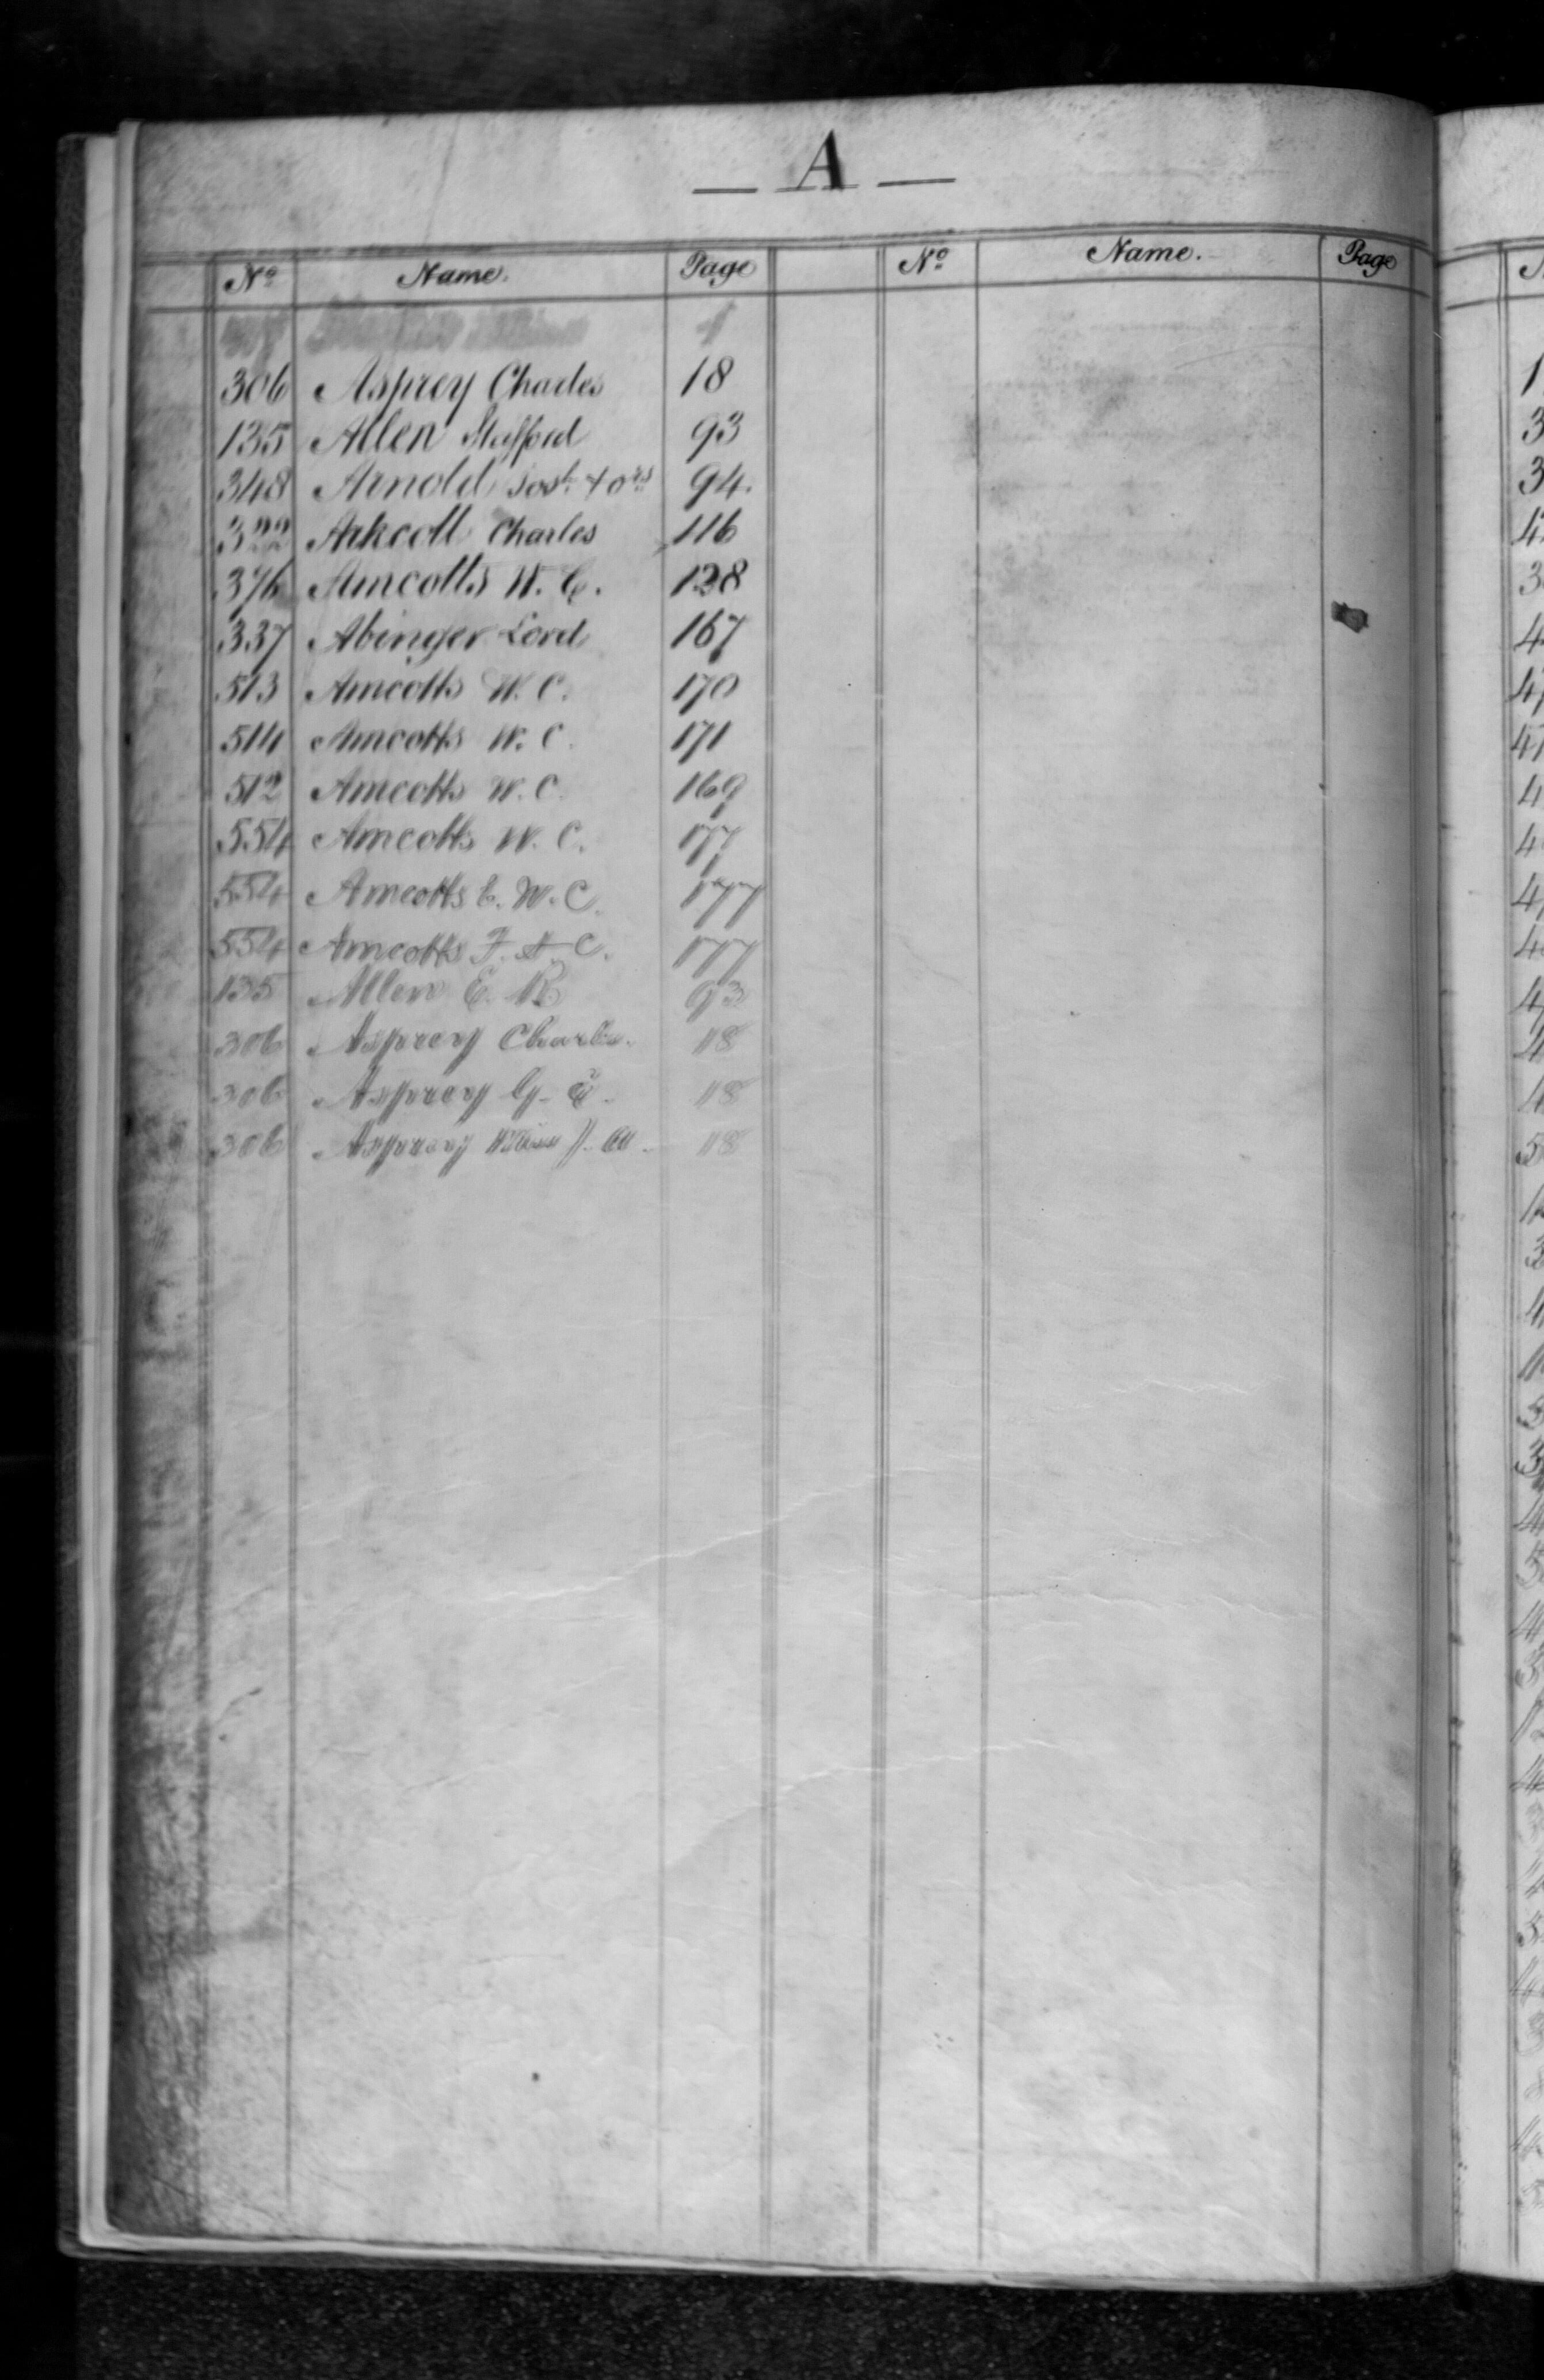 — A —
No Name. Page No Name. Page
306 Asprey Charles 18
135 Allen Stafford 93
348 Arnold Josh. + ors 94.
322 Charles 116
376 Amcotts W. C. 128
337 Abinger Lord 167
513 Amcotts W. C. 170
514 Amcotts W. C. 171
512 Amcotts W. C. 169
554 Amcotts W. C. 177
554 Amcotts C. W. C. 177
554 Amcotts F. A. C. 177
135 Allen E. R. 93
306 Asprey Charles. 18
306 Asprey G. E. 18
306 Asprey Miss 18